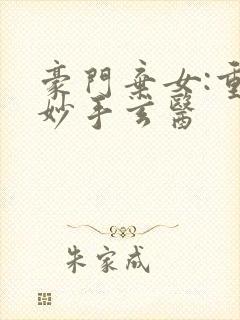 豪門棄女:重
妙手玄醫
朱家成